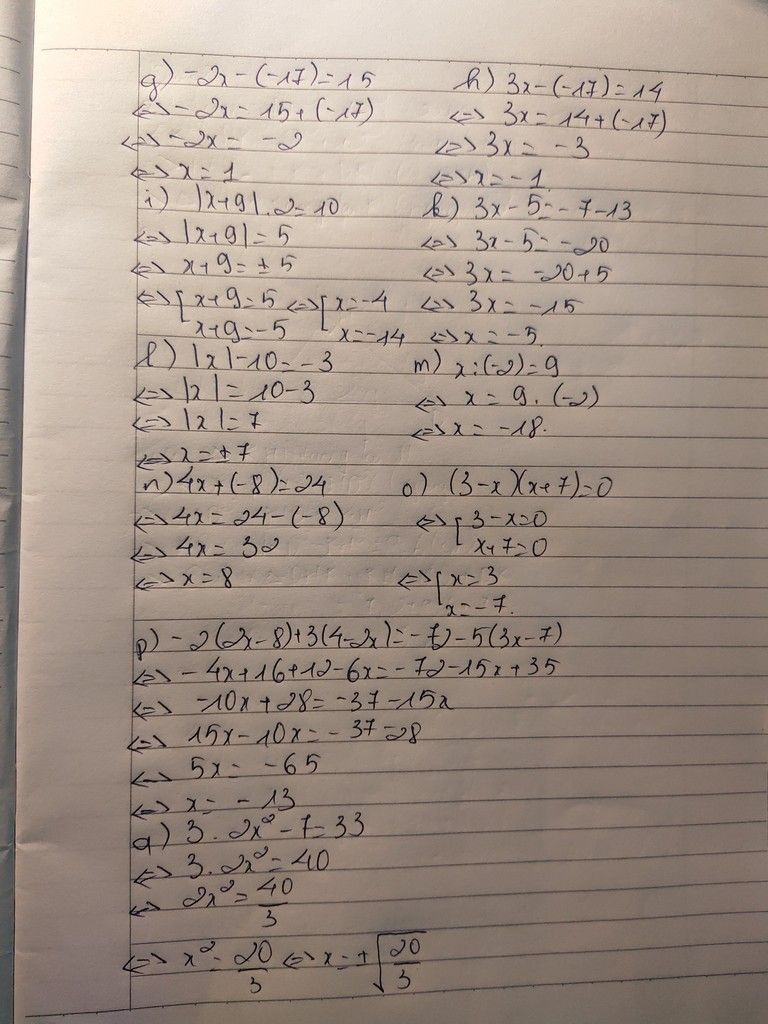 g) -2x - (-17) = 15
⇔ -2x = 15 + (-17)
⇔ -2x = -2
⇔ x = 1
h) 3x - (-17) = 14
⇔ 3x = 14 + (-17)
⇔ 3x = -3
⇔ x = -1
i) |x+9| . 2 = 10
⇔ |x+9| = 5
⇔ x+9 = ±5
⇔ [ x+9 = 5 ⇔ [ x = -4
x+9 = -5 x = -14
k) 3x - 5 = -7 - 13
⇔ 3x - 5 = -20
⇔ 3x = -20 + 5
⇔ 3x = -15
⇔ x = -5.
l) |x| - 10 = -3
⇔ |x| = 10 - 3
⇔ |x| = 7
⇔ x = ±7
m) x : (-2) = 9
⇔ x = 9 . (-2)
⇔ x = -18.
n) 4x + (-8) = 24
⇔ 4x = 24 - (-8)
⇔ 4x = 32
⇔ x = 8
o) (3-x)(x+7) = 0
⇔ [ 3-x = 0
x+7 = 0
⇔ [ x = 3
x = -7.
p) -2(2x-8) + 3(4-2x) = -72 - 5(3x-7)
⇔ -4x + 16 + 12 - 6x = -72 - 15x + 35
⇔ -10x + 28 = -37 - 15x
⇔ 15x - 10x = -37 - 28
⇔ 5x = -65
⇔ x = -13
q) 3 . 2x² - 7 = 33
⇔ 3 . 2x² = 40
⇔ 2x² = 40/3
⇔ x² = 20/3 ⇔ x = ±√(20/3)